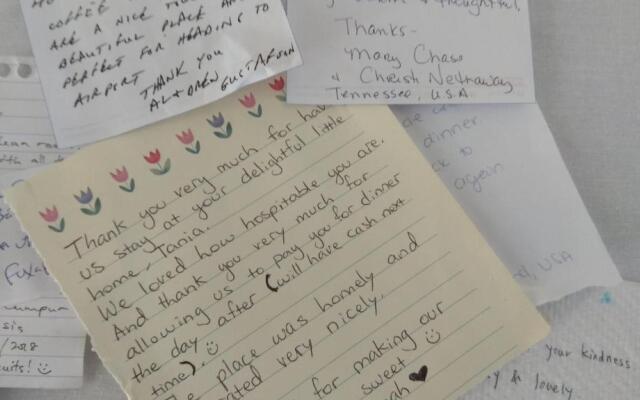 COFFEE
ARE A NICE
BEAUTIFUL PLACE
PERFECT FOR HEADING TO
AIRPORT THANK YOU
AL + DREW GUSTAFSON
& thoughtful,
Thanks-
Mary Chase
& Cherish Nethaway
Tennessee, U.S.A.
Thank you very much for hav
us stay at your delightful little
home, Tania.
We loved how hospitable you are.
And thank you very much for
allowing us to pay you for dinner
the day after (will have cash next
time). ☺
e place was homely and
ated very nicely.
for making our
sweet ☺
ah ♥
dinner
to
again
USA
with all
sis
/2018
uits! ☺
your kindness
y & lovely